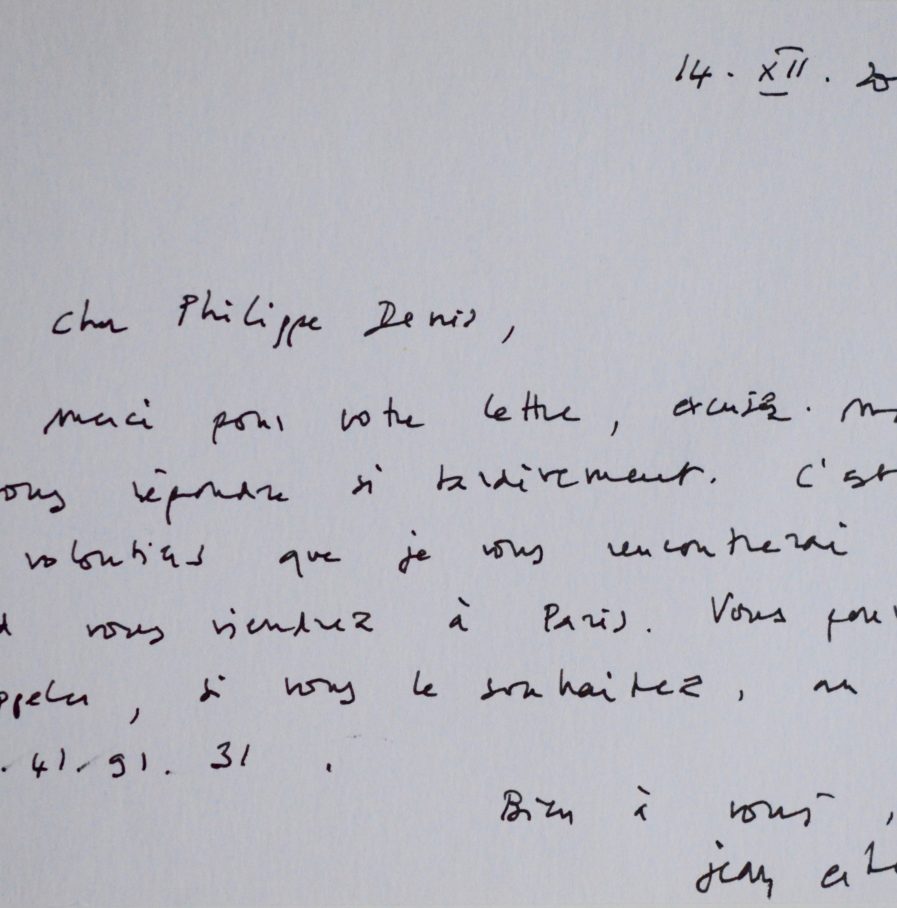 14. XII. 20
Cher Philippe Denis,
merci pour votre lettre, excusez-m
ous répondre si tardivement. C'est
volontiers que je vous rencontrerai
d vous viendrez à Paris. Vous pouv
ppeler, si vous le souhaitez, au
. 41. 91. 31.
Bien à vous,
jean